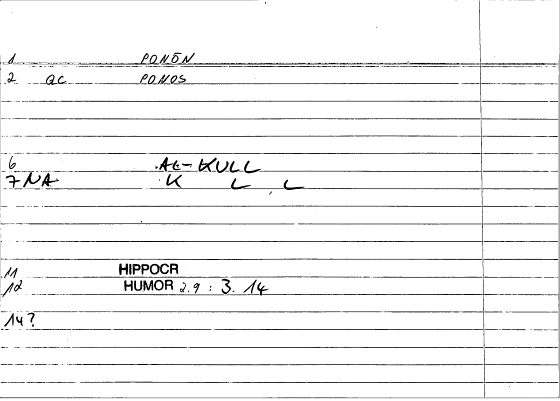 1 PONŌN
2 QC PONOS
6 AL-KULL
7 NA K L L
11 HIPPOCR
12 HUMOR 2.9 : 3. 14
14?